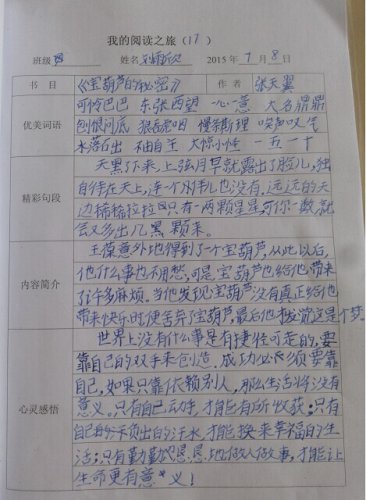 我的阅读之旅（17）
班级 四 姓名 2015年7月8日
书目 《宝葫芦的秘密》 作者 张天翼
优美词语
可怜巴巴 东张西望 一心一意 大名鼎鼎
刨根问底 狼吞虎咽 慢条斯理 唉声叹气
水落石出 不由自主 大惊小怪 一五一十
精彩句段
天黑了下来，上弦月早就露出了脸儿，独
自待在天上，连一个伴儿也没有，远远的天
边稀稀拉拉只有一两颗星星，可你一数，就
会又多出几黑颗来。
内容简介
王葆意外地得到了一个宝葫芦，从此以后，
他什么事也不用愁，可是，宝葫芦也给他带来
了许多麻烦。当他发现宝葫芦没有真正给他
带来快乐时，便丢弃了宝葫芦，最后他才发觉这是个梦
心灵感悟
世界上没有什么事是有捷径可走的，要
靠自己的双手来创造，成功必须要靠
自己，如果只靠依赖别人，那么生活将没有
意义。只有自己动手，才能有所收获；只有
自己的付出的汗水，才能换来幸福的生
活；只有勤勤恳恳地做人做事，才能让
生命更有意义！